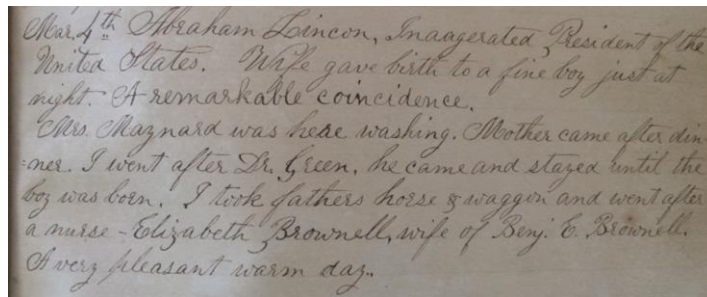 Mar. 4th Abraham Lincon, Inaagerated President of the
United States. Wife gave birth to a fine boy just at
night. A remarkable coincidence.
Mrs. Maynard was here washing. Mother came after din-
=ner. I went after Dr. Green, he came and stayed until the
boy was born. I took fathers horse & waggon and went after
a nurse - Elizabeth Brownell, wife of Benj. E. Brownell.
A very pleasant warm day.